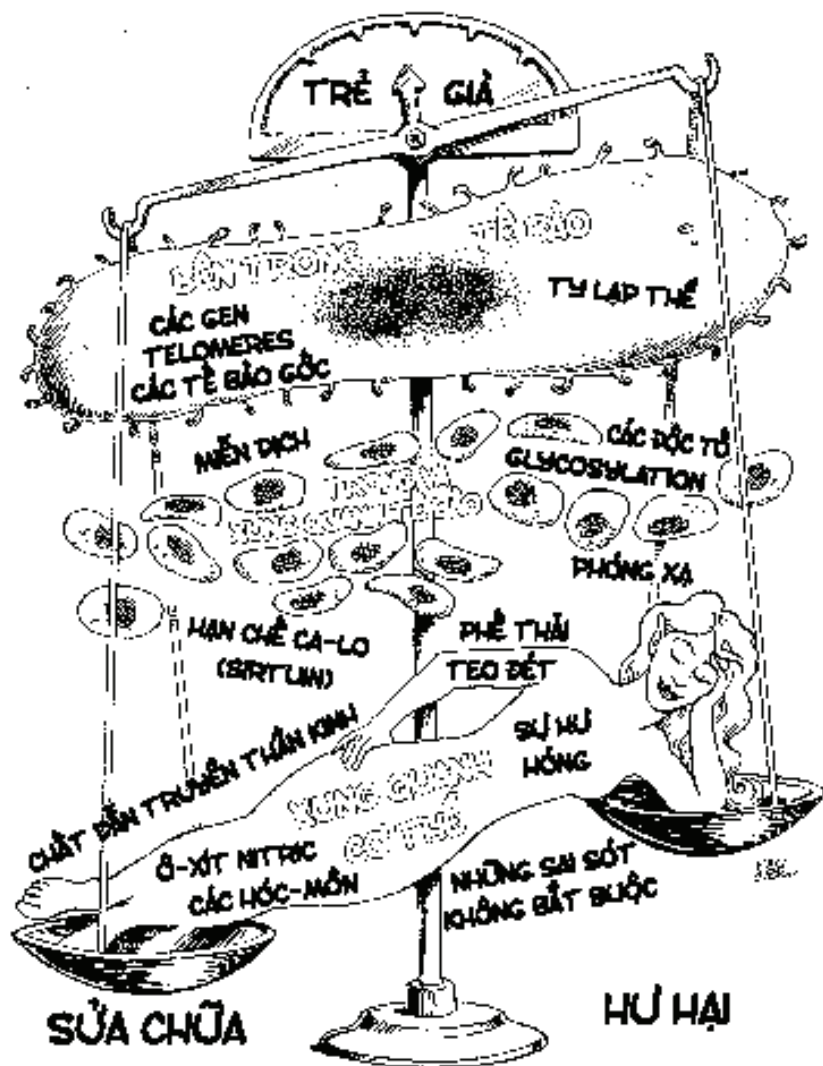 TRẺ GIÀ
BÊN TRONG TẾ BÀO
TY LẠP THỂ
CÁC GEN
TELOMERES
CÁC TẾ BÀO GỐC
MIỄN DỊCH
CÁC ĐỘC TỐ
GLYCOSYLATION
XUNG QUANH TẾ BÀO
PHÓNG XẠ
HẠN CHẾ CA-LO
(SIRTUIN)
PHẾ THẢI
TEO ĐÉT
SỰ HƯ
HỎNG
CHẤT DẪN TRUYỀN THẦN KINH
XUNG QUANH
CƠ THỂ
Ô-XÍT NITRIC
CÁC HÓC-MÔN
NHỮNG SAI SÓT
KHÔNG BẮT BUỘC
SỬA CHỮA
HƯ HẠI